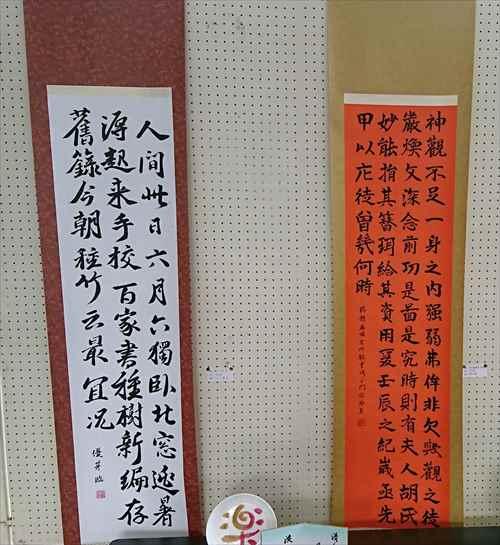 神觀不足一身之内强弱弗侔非欠歟觀之徒
嚴煥文深念前功是啚是究時則有夫人胡氏
妙能捐其簪珥給其資用爰壬辰之紀歲丞先
甲以庀徒曾幾何時
人間此日六月六獨卧北窓逃暑
淂起来手校百家書種樹新編存
舊籙今朝種竹云最宜况
臨
楽